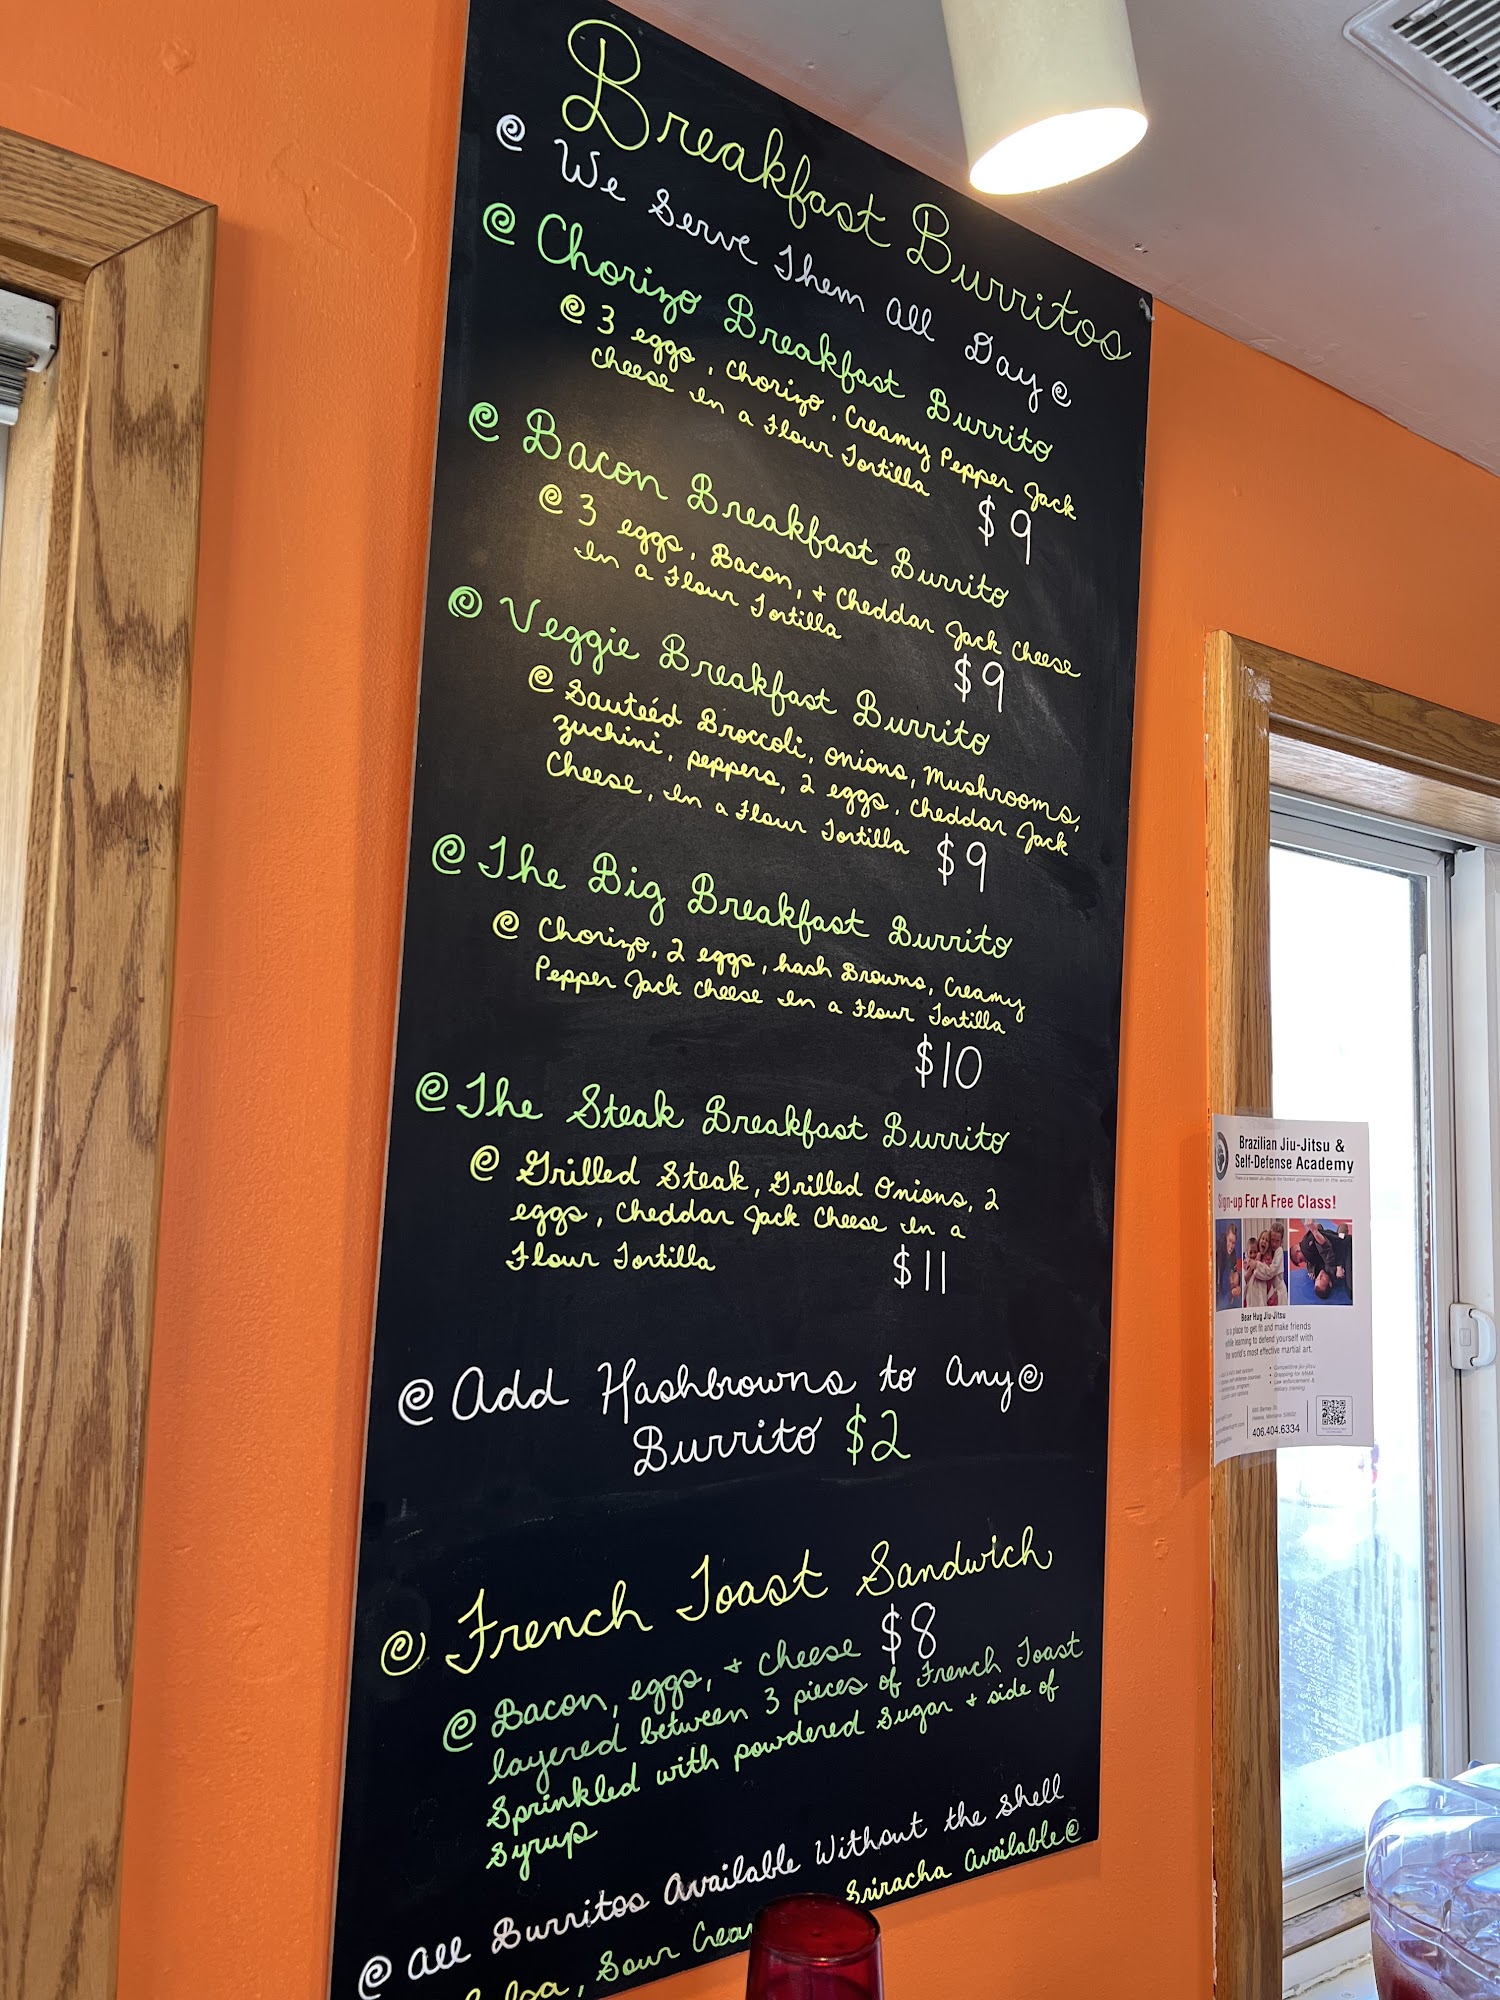 Breakfast Burritos
@ We Serve Them All Day @
@ Chorizo Breakfast Burrito
@ 3 eggs, Chorizo, Creamy Pepper Jack
Cheese In a Flour Tortilla
$9
@ Bacon Breakfast Burrito
@ 3 eggs, Bacon, + Cheddar Jack Cheese
In a Flour Tortilla
$9
@ Veggie Breakfast Burrito
@ Sauteéd Broccoli, onions, Mushrooms,
zuchini, peppers, 2 eggs, Cheddar Jack
Cheese, In a Flour Tortilla $9
@ The Big Breakfast Burrito
@ Chorizo, 2 eggs, hash Browns, Creamy
Pepper Jack Cheese In a Flour Tortilla
$10
@ The Steak Breakfast Burrito
@ Grilled Steak, Grilled Onions, 2
eggs, Cheddar Jack Cheese In a
Flour Tortilla $11
@ Add Hashbrowns to Any @
Burrito $2
@ French Toast Sandwich
@ Bacon, eggs, + cheese $8
layered between 3 pieces of French Toast
Sprinkled with powdered Sugar + side of
Syrup
@ All Burritos Available Without the shell
Sour Crea Sriracha Available @
Brazilian Jiu-Jitsu &
Self-Defense Academy
Sign-up For A Free Class!
Bear Hug Jiu-Jitsu
is a place to get fit and make friends
while learning to defend yourself with
the world's most effective martial art.
Competitive jiu-jitsu
Grappling for MMA
Law enforcement &
military training
Helena, Montana 59602
406.404.6334